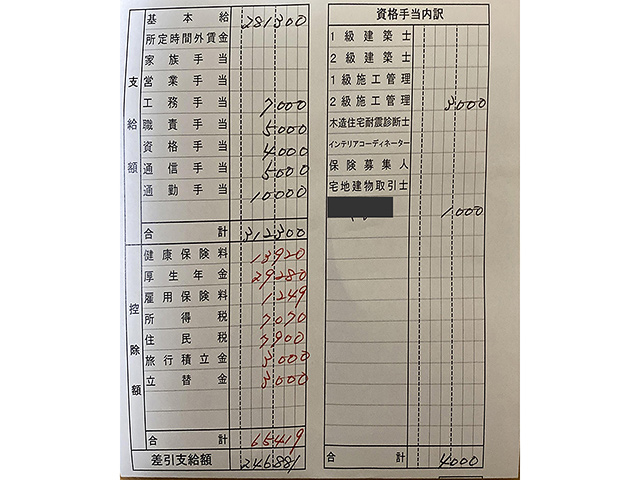 支給額
基本給 281300
所定時間外賃金
家族手当
営業手当
工務手当 7000
職責手当 5000
資格手当 4000
通信手当 5000
通勤手当 10000
合計 312300
控除額
健康保険料 13920
厚生年金 29280
雇用保険料 1249
所得税 7070
住民税 7900
旅行積立金 3000
立替金 3000
合計 65419
差引支給額 246881
資格手当内訳
1級建築士
2級建築士
1級施工管理
2級施工管理 3000
木造住宅耐震診断士
インテリアコーディネーター
保険募集人
宅地建物取引士
1000
合計 4000